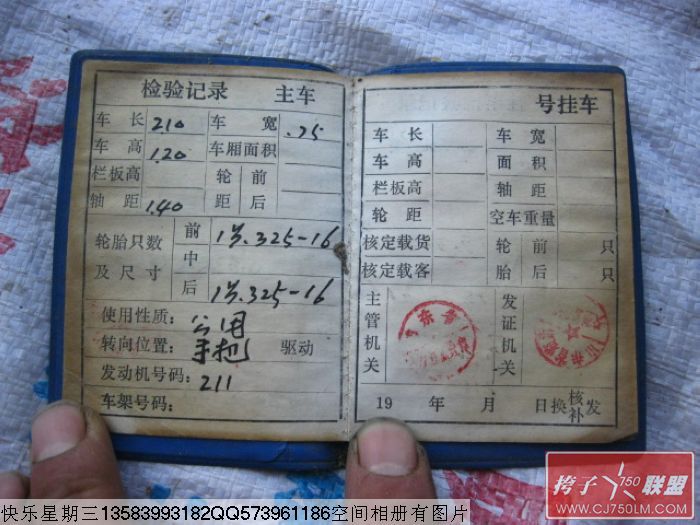 检验记录 主车
车长 2.10 车宽 .75
车高 1.20 车厢面积
栏板高 轮 前
轴距 1.40 距 后
轮胎只数及尺寸
前 1只.325-16
中
后 1只.325-16
使用性质：公用
转向位置：手把 驱动
发动机号码：211
车架号码：
号挂车
车长 车宽
车高 面积
栏板高 轴距
轮距 空车重量
核定载货 轮 前 只
核定载客 胎 后 只
主管机关
发证机关
19 年 月 日换核补发
挎子750联盟
www.CJ750LM.COM
快乐星期三13583993182QQ573961186空间相册有图片